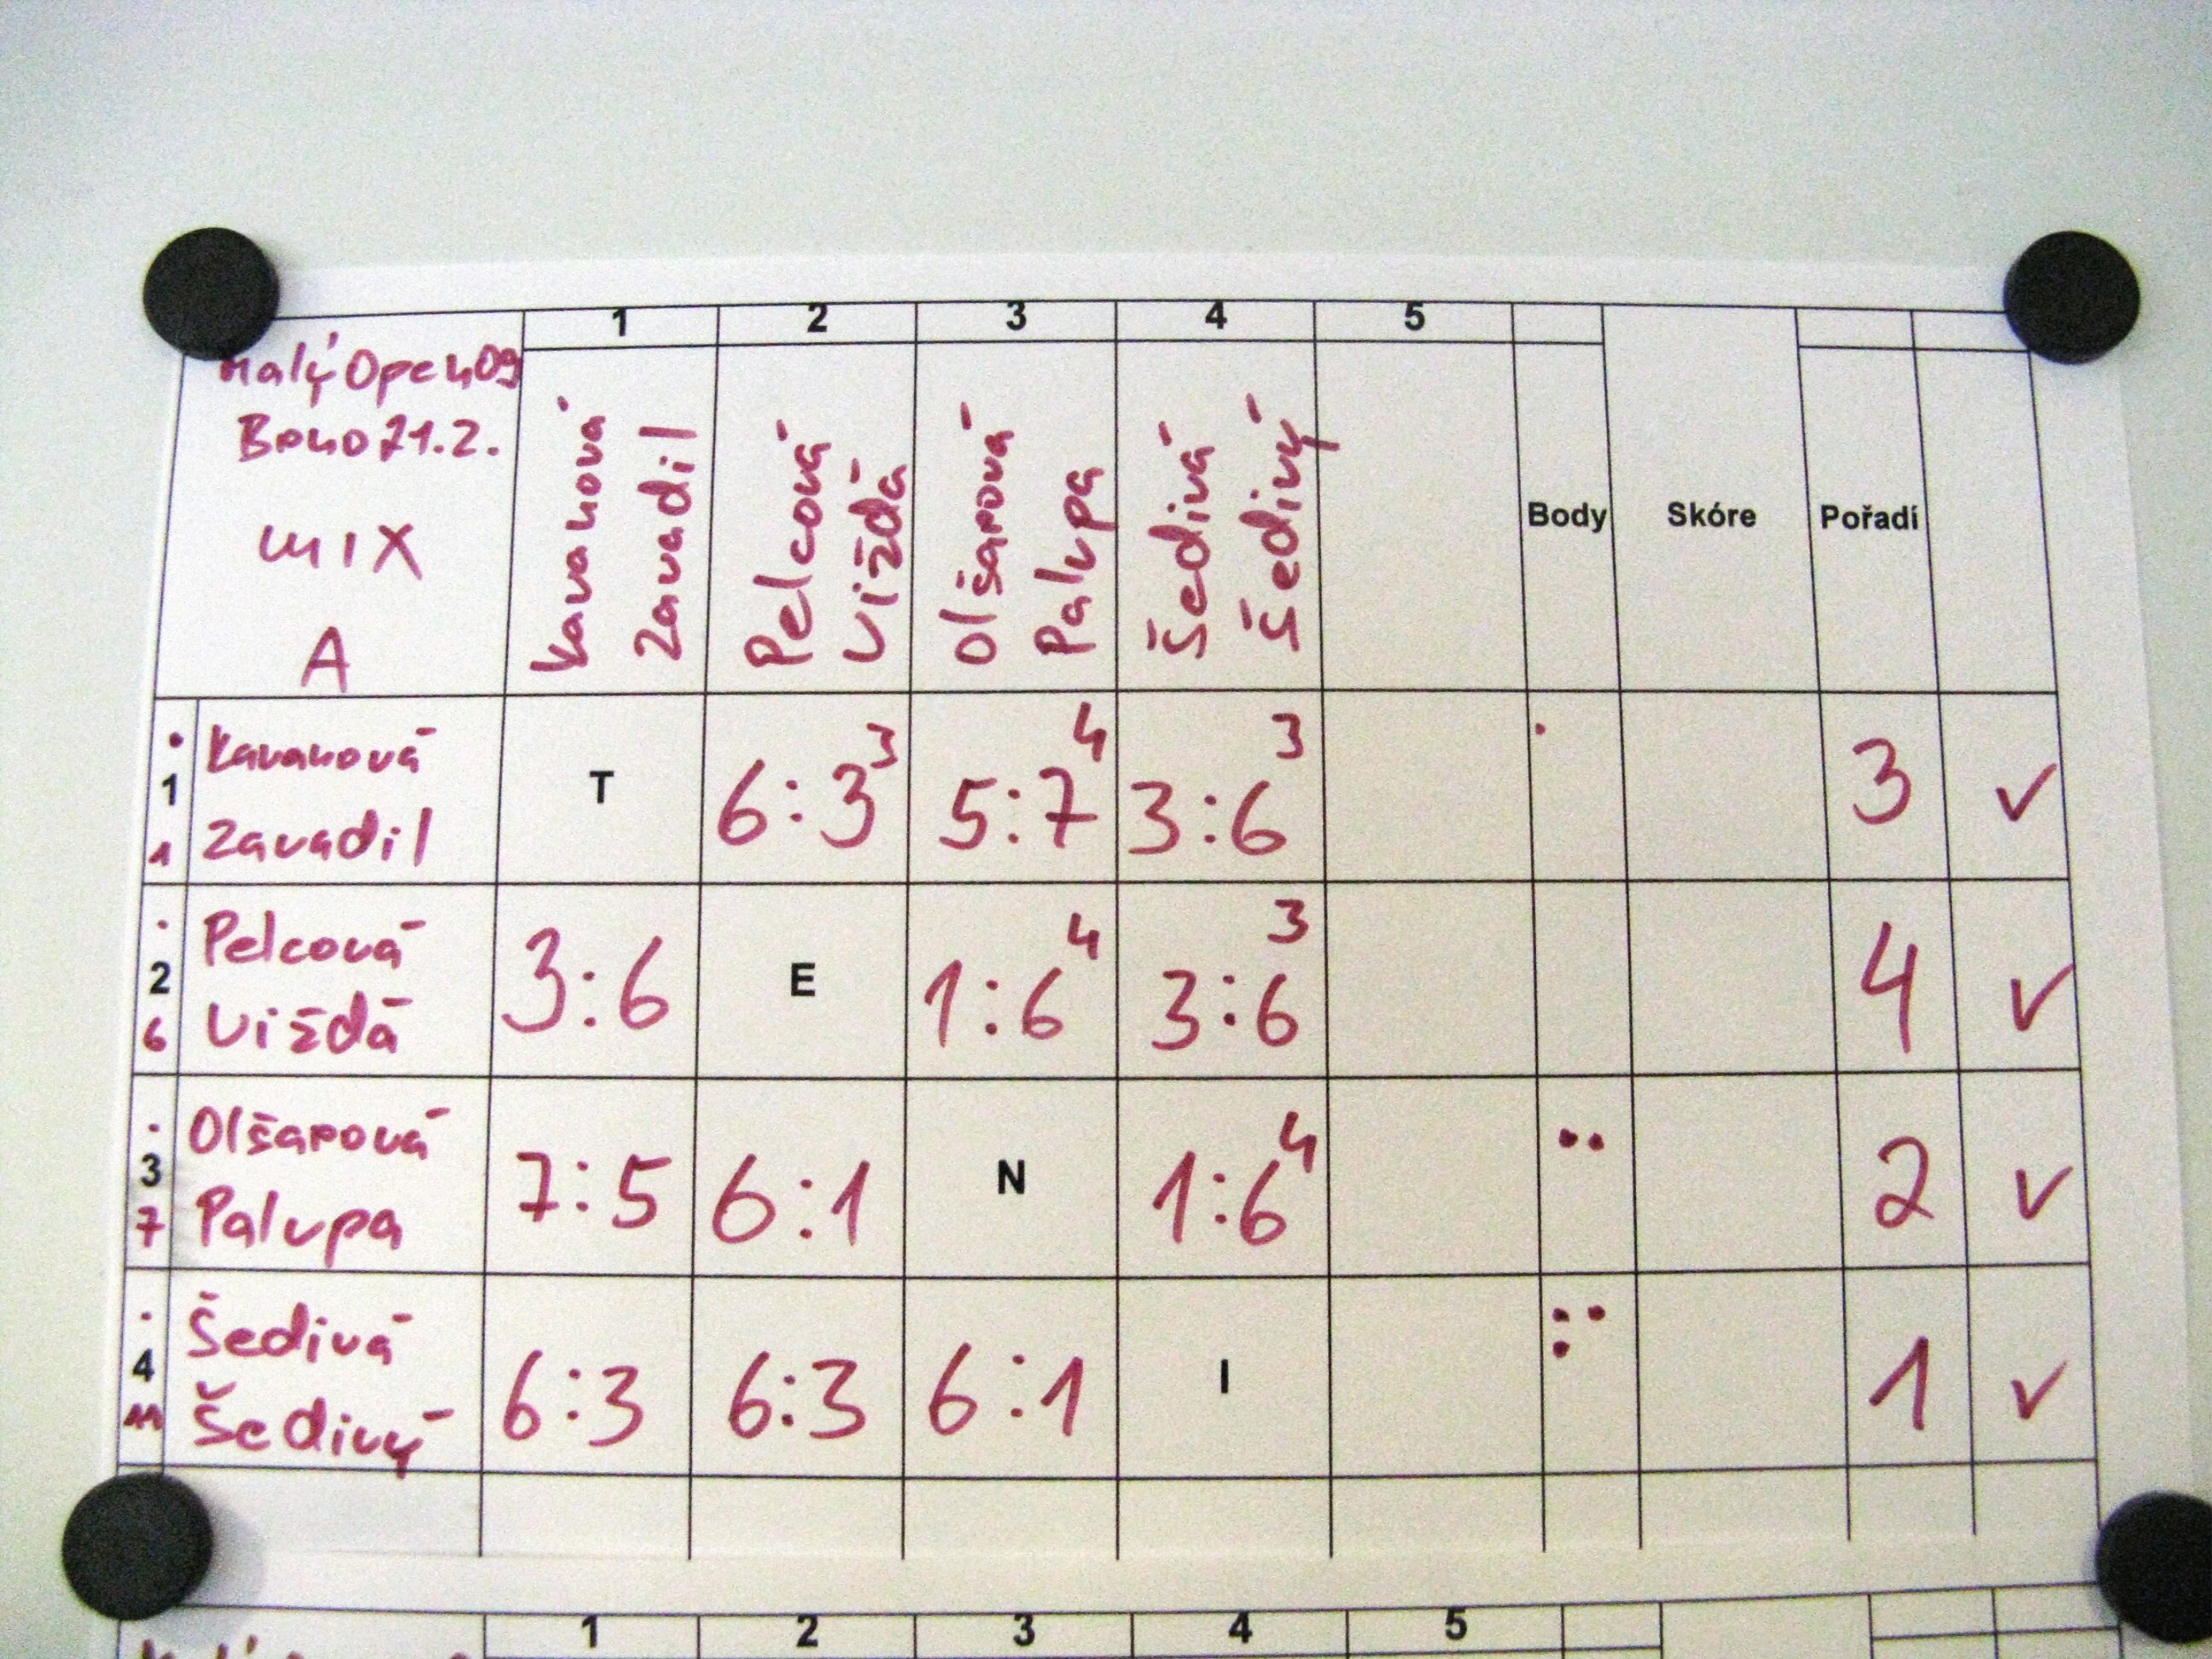 1 2 3 4 5
Malý Open 09
Brno 21.2.
MIX
A
Kavanová Zavadil
Pelcová Vižďa
Olšarová Palupa
Šedivá Šedivý
Body Skóre Pořadí
1 Kavanová T 6:3 3 5:7 4 3:6 3 3 ✓
1 Zavadil
2 Pelcová 3:6 E 1:6 4 3:6 3 4 ✓
6 Vižďa
3 Olšarová 7:5 6:1 N 1:6 4 2 ✓
7 Palupa
4 Šedivá 6:3 6:3 6:1 I 1 ✓
11 Šedivý
1 2 3 4 5